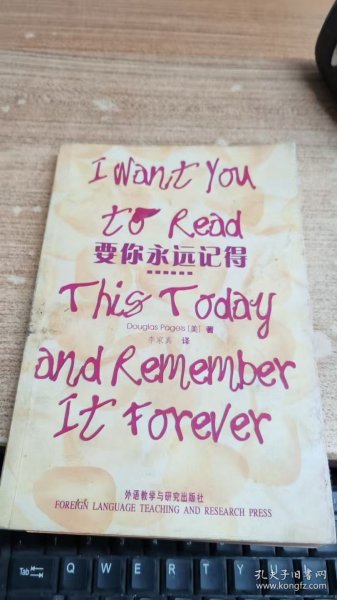 I Want You
to Read
要你永远记得
This Today
Douglas Pagels [美] 著
李家真 译
and Remember
It Forever
外语教学与研究出版社
FOREIGN LANGUAGE TEACHING AND RESEARCH PRESS
Tab Q W E R T Y U
孔夫子旧书网
www.kongfz.com